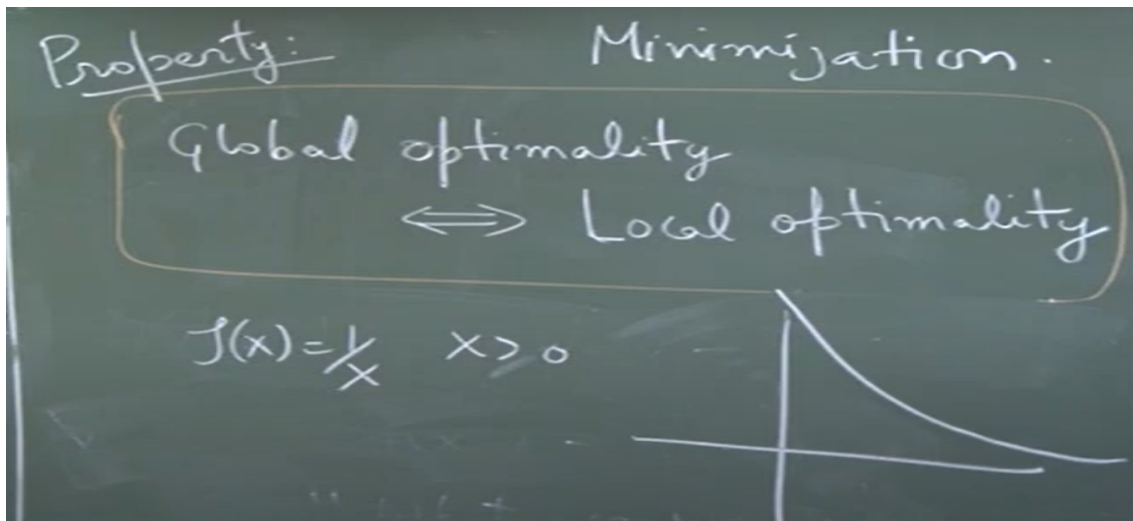 Property:
Minimization.
Global optimality
⟺ Local optimality
f(x) = 1/x x > 0